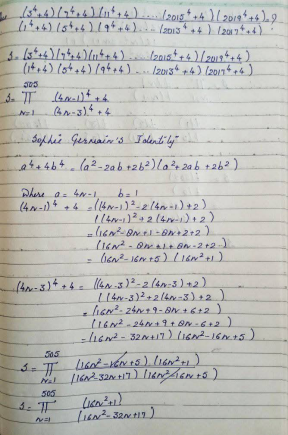 (3⁴+4)(7⁴+4)(11⁴+4) ..... (2015⁴+4)(2019⁴+4) ?
(1⁴+4)(5⁴+4)(9⁴+4) ..... (2013⁴+4)(2017⁴+4)
S = (3⁴+4)(7⁴+4)(11⁴+4) ..... (2015⁴+4)(2019⁴+4)
(1⁴+4)(5⁴+4)(9⁴+4) ..... (2013⁴+4)(2017⁴+4)
505
S = Π (4n-1)⁴+4
n=1 (4n-3)⁴+4
Sophie Germain's Identity
a⁴+4b⁴ = (a²-2ab+2b²)(a²+2ab+2b²)
Where a = 4n-1 b = 1
(4n-1)⁴+4 = ((4n-1)²-2(4n-1)+2)
((4n-1)²+2(4n-1)+2)
= (16n²-8n+1-8n+2+2)
(16n²-8n+1+8n-2+2)
= (16n²-16n+5)(16n²+1)
(4n-3)⁴+4 = ((4n-3)²-2(4n-3)+2)
((4n-3)²+2(4n-3)+2)
= (16n²-24n+9-8n+6+2)
(16n²-24n+9+8n-6+2)
= (16n²-32n+17)(16n²-16n+5)
505
S = Π (16n²-16n+5)(16n²+1)
n=1 (16n²-32n+17)(16n²-16n+5)
505
S = Π (16n²+1)
n=1 (16n²-32n+17)